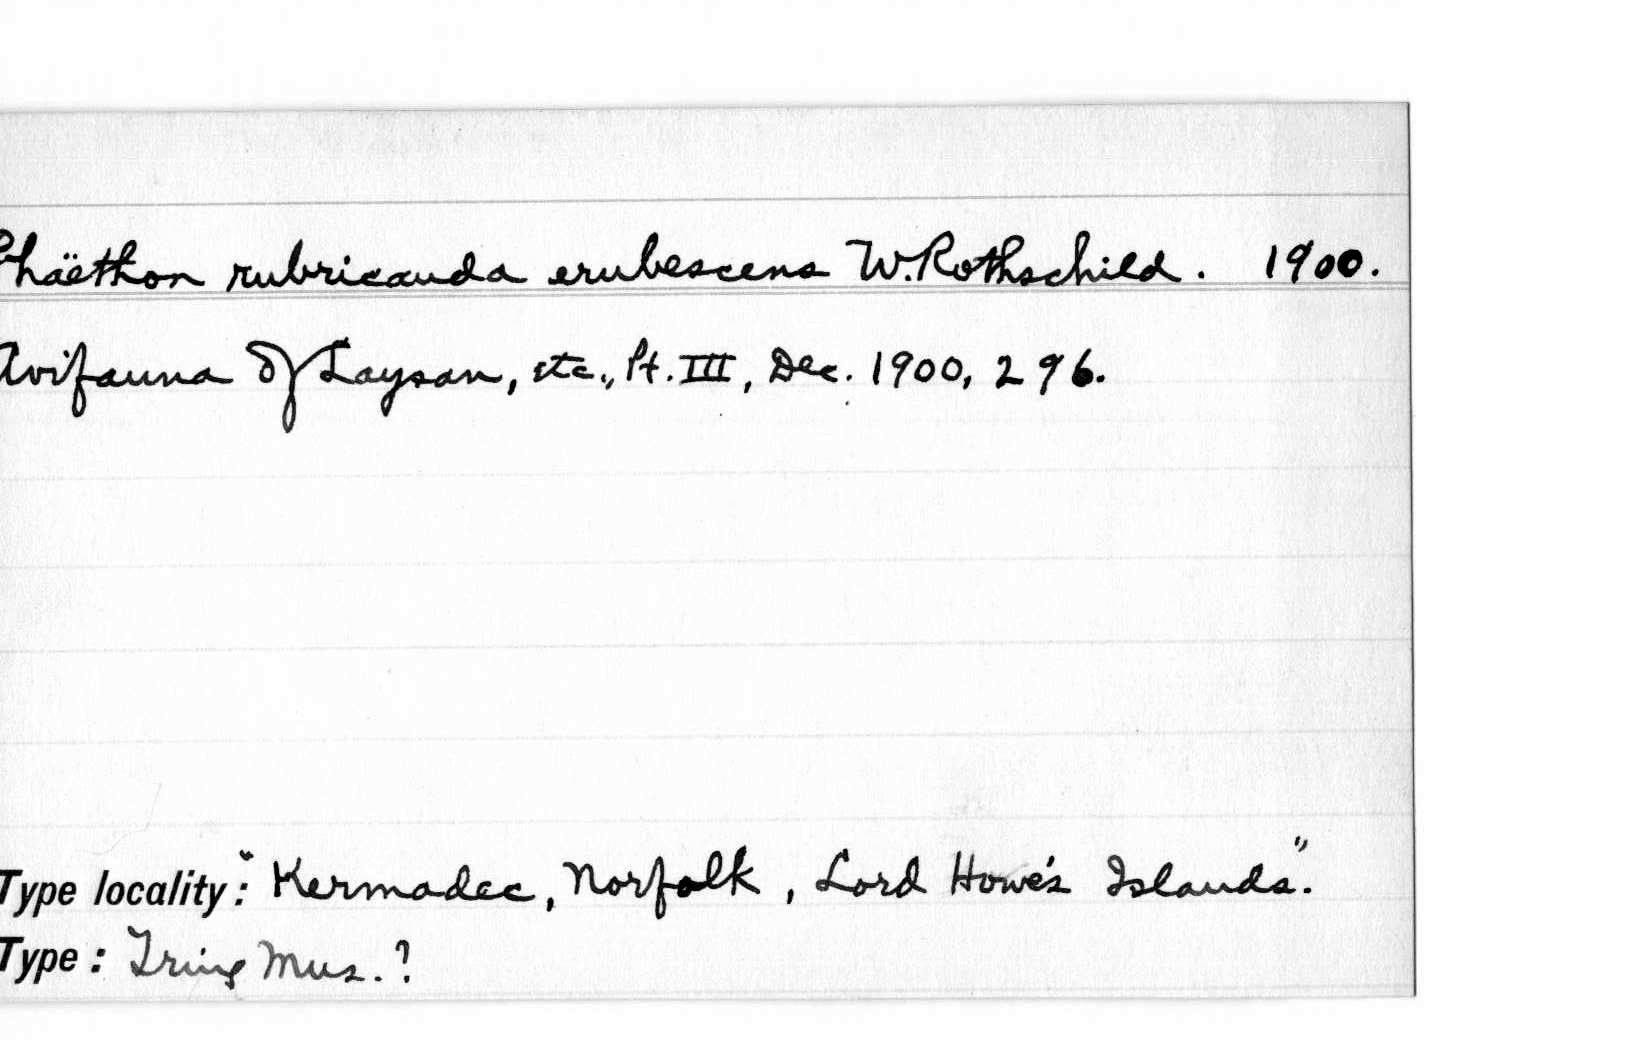 Phaëthon rubricauda erubescens W. Rothschild. 1900.
Avifauna of Laysan, etc., Pt. III, Dec. 1900, 296.
Type locality: "Kermadec, Norfolk, Lord Howe's Islands".
Type: Tring Mus. ?